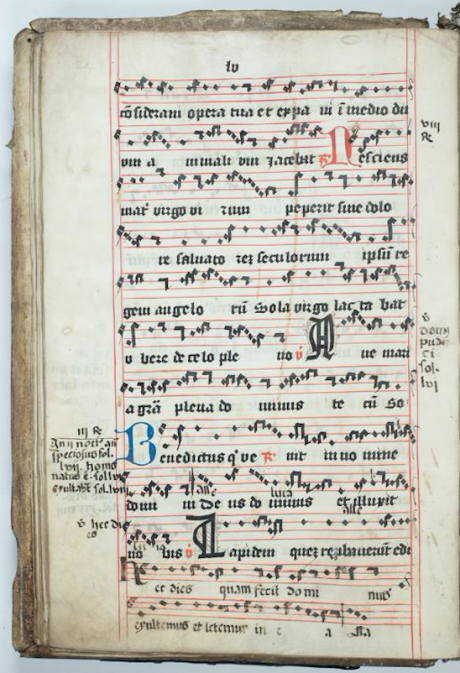 lv
cōsideraui opera tua et expa ui ī medio du
um a nimali um iacebat R Nesciens
mat virgo vi rum peperit sine dolo
re saluato rez seculorum ipsū re
gem angelo rū Sola virgo lac ta bat
u bere de celo ple no v A ue mari
a grā plena do minus te cū So
Benedictus q ve R nit in no mine
domi ni De us do minus et illuxit
no bis v Lapidem quez reprobauerūt edi
et dies quam fecit do mi nus
exultemus et letemur in e a
viii
R
v
sol
lvi
iii R
speciosus sol
lvii homo
natus ē sol lvii
v hec di
es